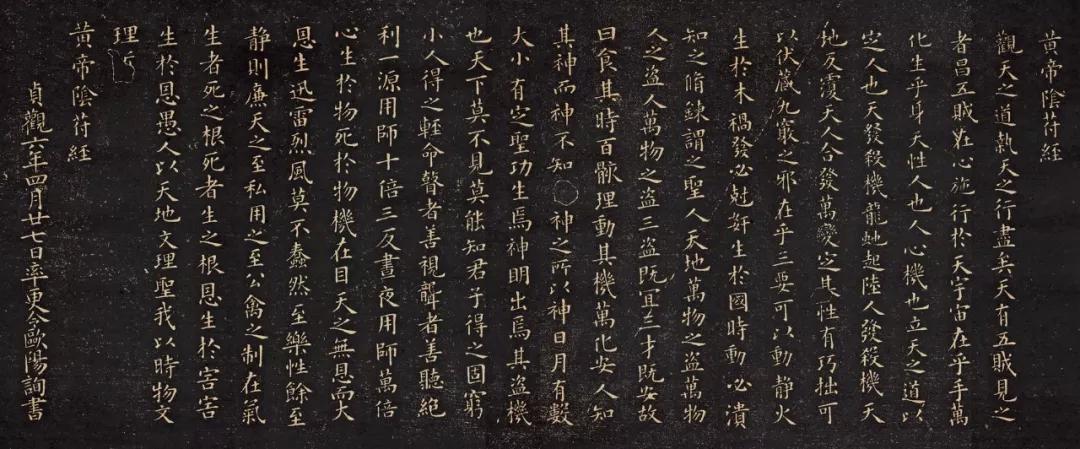 黄帝陰苻經
觀天之道執天之行盡矣天有五賊見之
者昌五賊在心施行於天宇宙在乎手萬
化生乎身天性人也人心機也立天之道以
定人也天發殺機龍虵起陸人發殺機天
地反覆天人合發萬變定基性有巧拙可
以伏藏九竅之邪在乎三要可以動静火
生於木禍發必尅奸生於國時動必潰
知之脩鍊謂之聖人天地萬物之盜萬物
人之盜人萬物之盜三盜既宜三才既安故
曰食其時百骸理動其機萬化安人知
其神而神不知神之所以神日月有數
大小有定聖功生焉神明出焉其盜機
也天下莫不見莫能知君子得之固窮
小人得之輕命瞽者善視聾者善聽絶
利一源用師十倍三反晝夜用師萬倍
心生於物死於物機在目天之無恩而大
恩生迅雷烈風莫不蠢然至樂性餘至
静則廉天之至私用之至公禽之制在氣
生者死之根死者生之根恩生於害害
生於恩愚人以天地文理聖我以時物文
理
黄帝陰苻經
貞觀六年四月廿七日率更令歐陽詢書